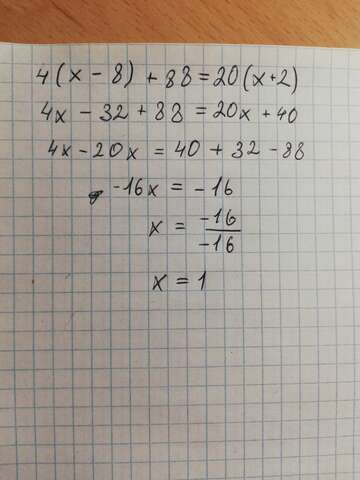 4(x - 8) + 88 = 20(x+2)
4x - 32 + 88 = 20x + 40
4x - 20x = 40 + 32 - 88
-16x = -16
x = -16/-16
x = 1